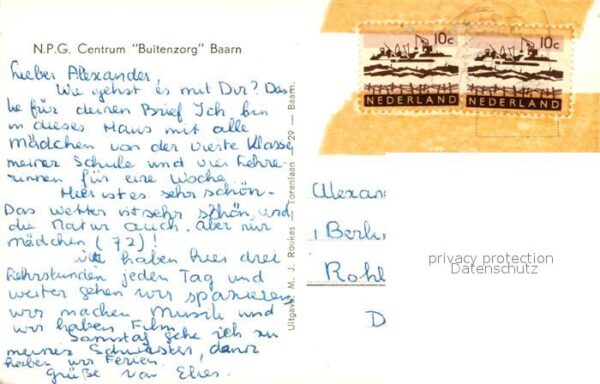 N.P.G. Centrum "Buitenzorg" Baarn
Lieber Alexander
Wie gehst es mit Dir? Dan
ke für deinen Brief Ich bin
in dieses Haus mit alle
mädchen von der vierte Klasse
meiner Schule und vier Lehre-
rinnen für eine Woche
Hier ist es sehr schön.
Das wetter ist sehr schön, und
die Natur auch. aber nur
mädchen (72)!
Wir haben hier drei
Lehrstunden jeden Tag und
weiter gehen wir spazieren
wir machen Musik und
wir haben Film.
Samstag gehe ich zu
meiner Schwester, dann
haben wir Ferien.
Grüße von
Uitgave: M. J. Roukes - Torenlaan 29 - Baarn.
10c
NEDERLAND
10c
NEDERLAND
Alexan
Berli
Rohl
D
privacy protection
Datenschutz